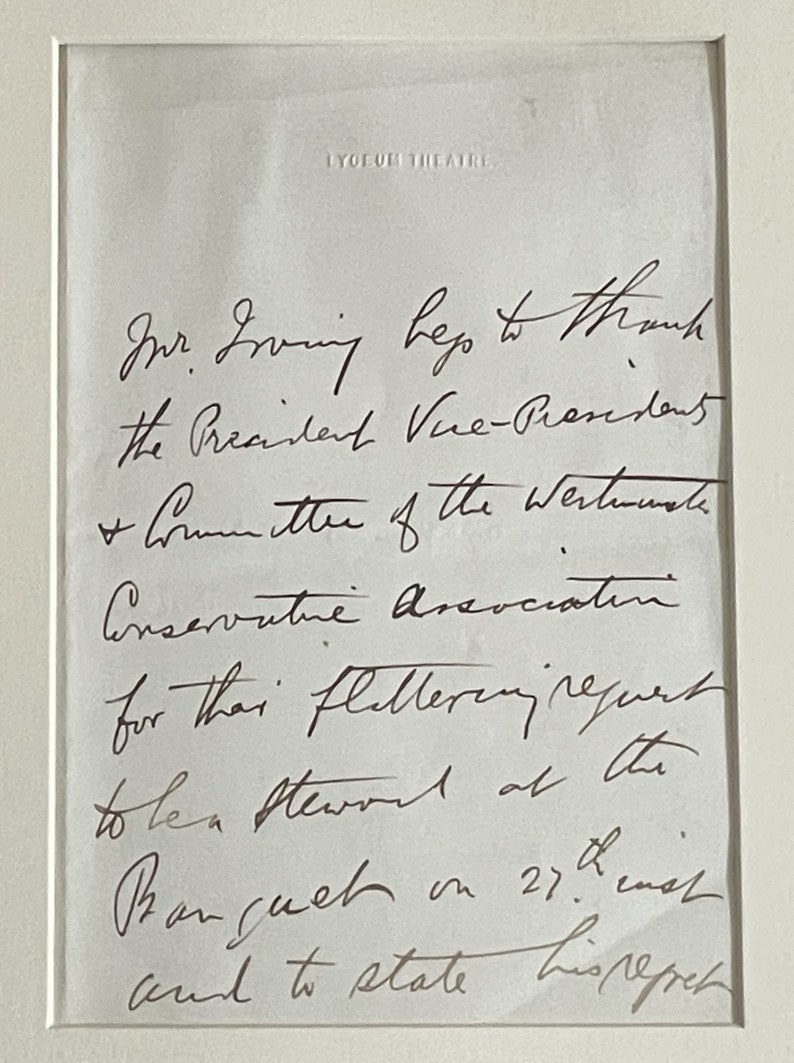 LYCEUM THEATRE
Mr. Irving begs to thank
the President Vice-Presidents
& Committee of the Westminster
Conservative Association
for their flattering request
to be a Steward at the
Banquet on 27th inst
and to state his regret